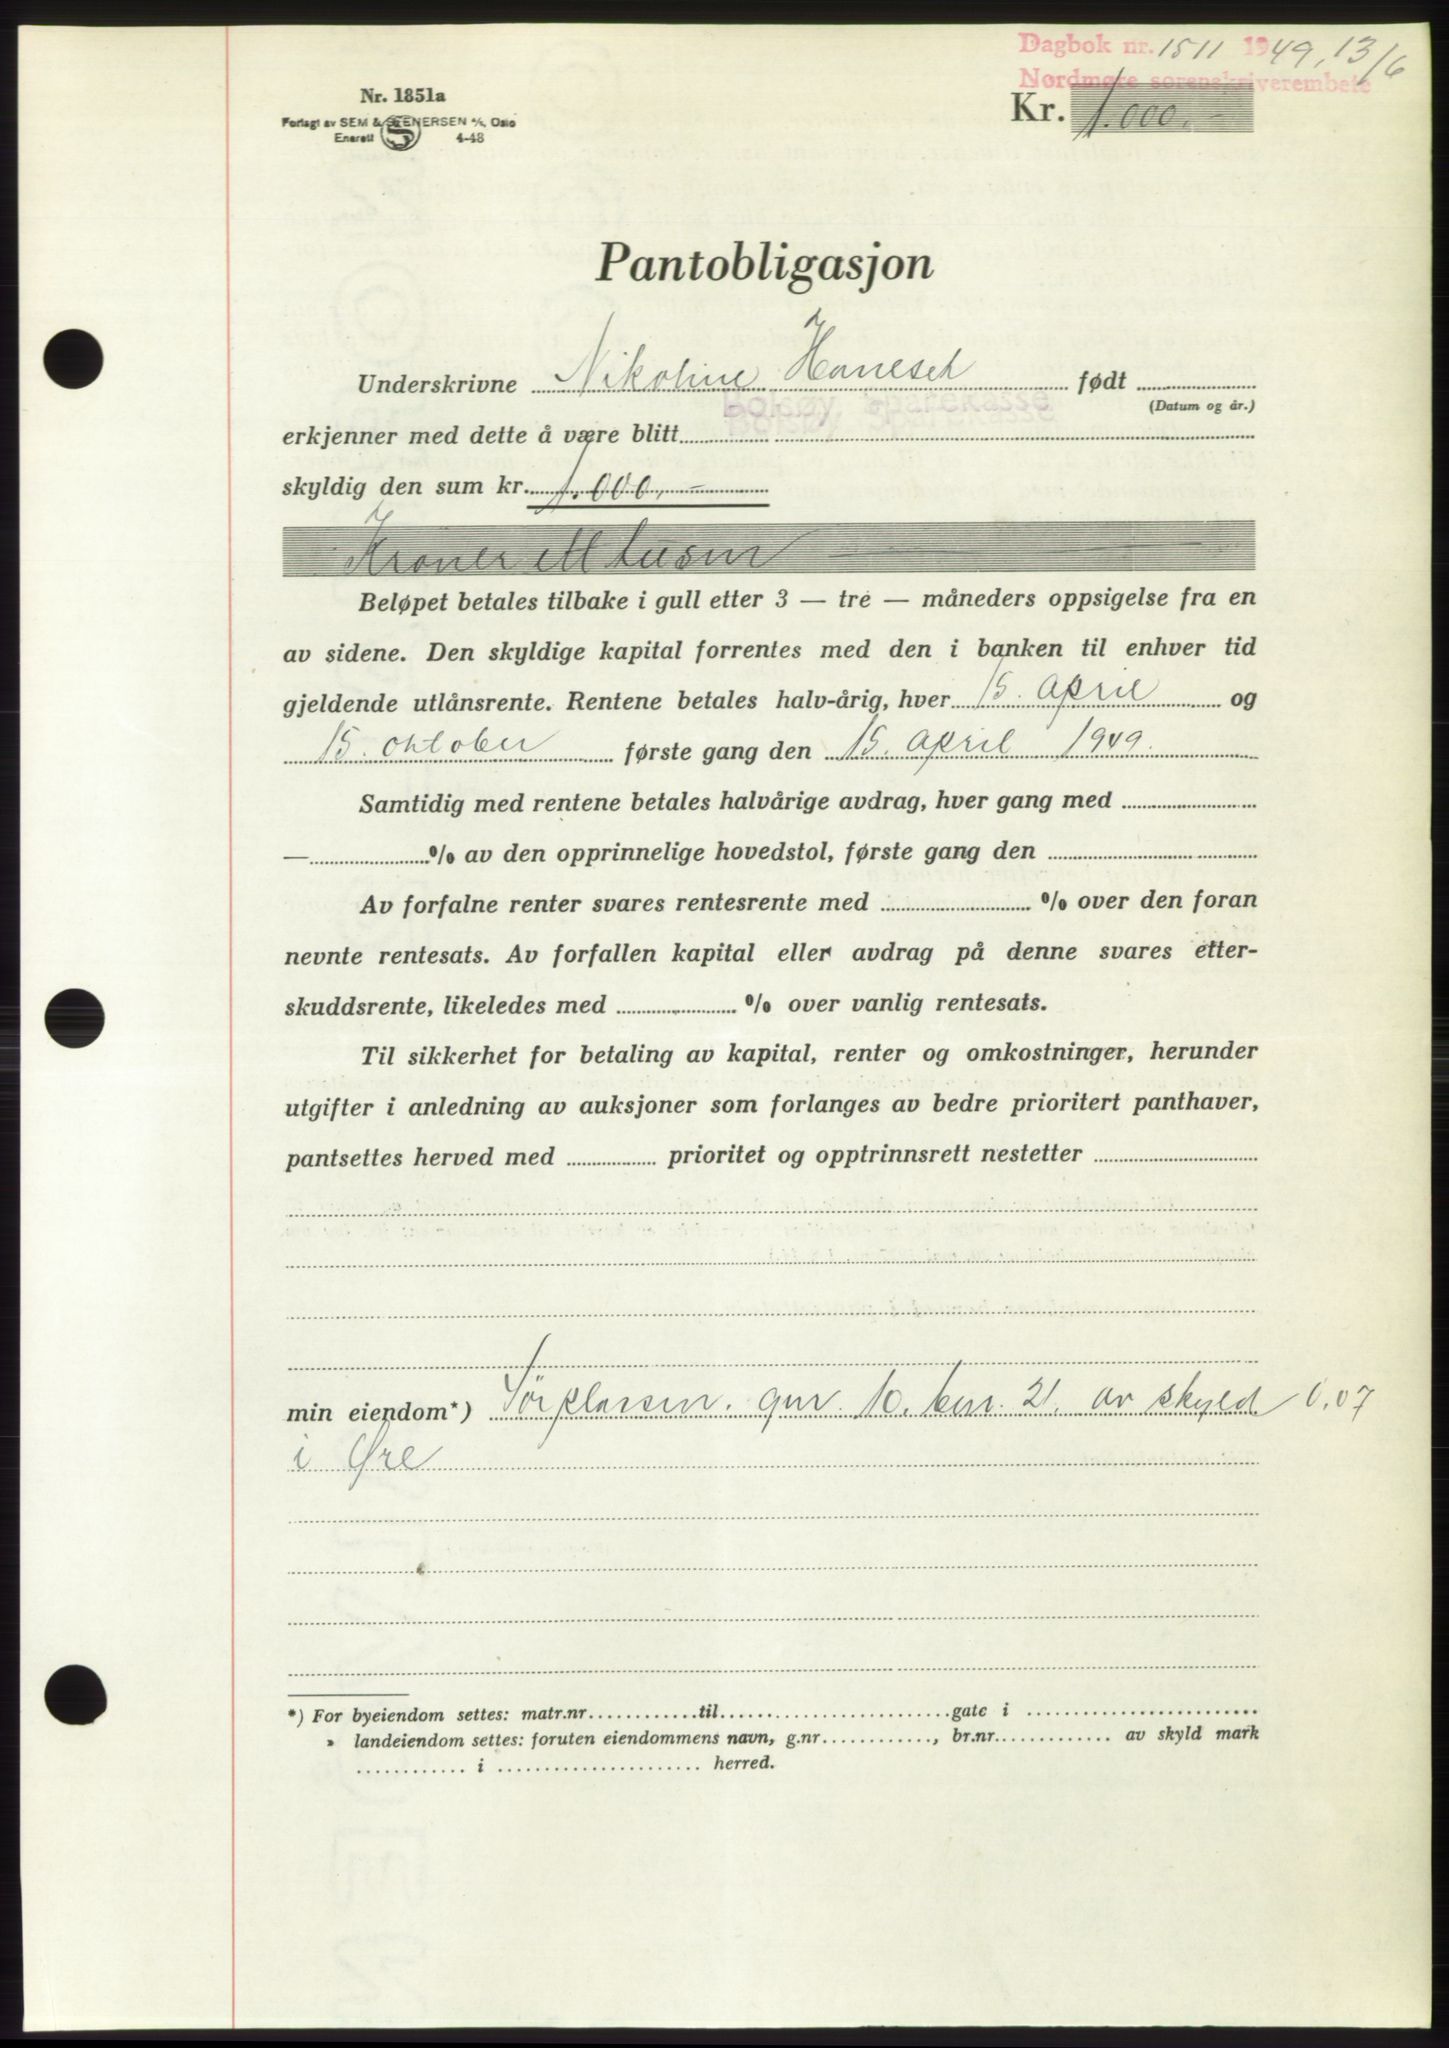 Dagbok nr. 1511 1949, 13/6
Nordmøre sorenskriverembete
Nr. 1851a
Forlagt av SEM & STENERSEN A/S, Oslo
Enerett 4-48
Kr. 1.000.-
Pantobligasjon
Underskrivne Nikoline Haneset født
(Datum og år.)
Bolsøy Sparekasse
erkjenner med dette å være blitt
skyldig den sum kr. 1.000,-
Kroner ett tusen
Beløpet betales tilbake i gull etter 3 — tre — måneders oppsigelse fra en
av sidene. Den skyldige kapital forrentes med den i banken til enhver tid
gjeldende utlånsrente. Rentene betales halv-årig, hver 15. april og
15. oktober første gang den 15. april 1949.
Samtidig med rentene betales halvårige avdrag, hver gang med
— % av den opprinnelige hovedstol, første gang den
Av forfalne renter svares rentesrente med % over den foran
nevnte rentesats. Av forfallen kapital eller avdrag på denne svares etter-
skuddsrente, likeledes med % over vanlig rentesats.
Til sikkerhet for betaling av kapital, renter og omkostninger, herunder
utgifter i anledning av auksjoner som forlanges av bedre prioritert panthaver,
pantsettes herved med prioritet og opptrinnsrett nestetter
min eiendom*) gnr. 10. bnr. 21. av skyld 0,07
i Øre
*) For byeiendom settes: matr.nr. til gate i
» landeiendom settes: foruten eiendommens navn, g.nr. , br.nr. av skyld mark
i herred.